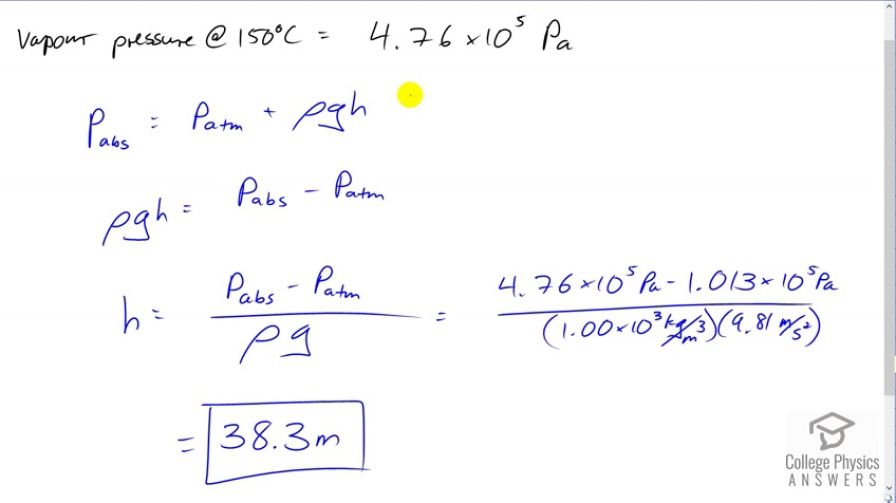 Vapour pressure @ 150°C = 4.76 × 10⁵ Pa
P_abs = P_atm + ρgh
ρgh = P_abs - P_atm
h = (P_abs - P_atm) / (ρg) = (4.76 × 10⁵ Pa - 1.013 × 10⁵ Pa) / ((1.00 × 10³ kg/m³)(9.81 m/s²))
= 38.3 m
College Physics
ANSWERS